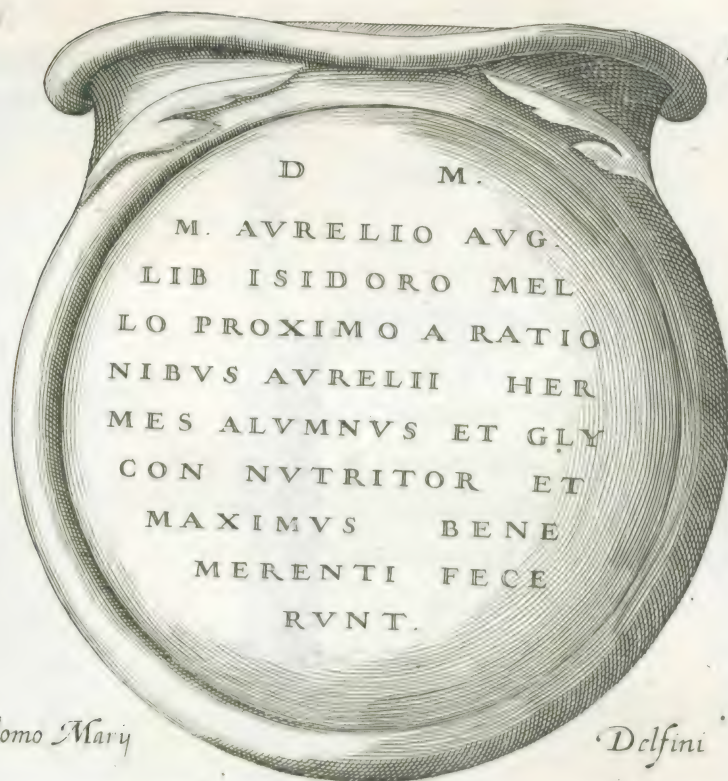 D M.
M. AVRELIO AVG.
LIB ISIDORO MEL
LO PROXIMO A RATIO
NIBVS AVRELII HER
MES ALVMNVS ET GLY
CON NVTRITOR ET
MAXIMVS BENE
MERENTI FECE
RVNT.
omo Marij Delfini